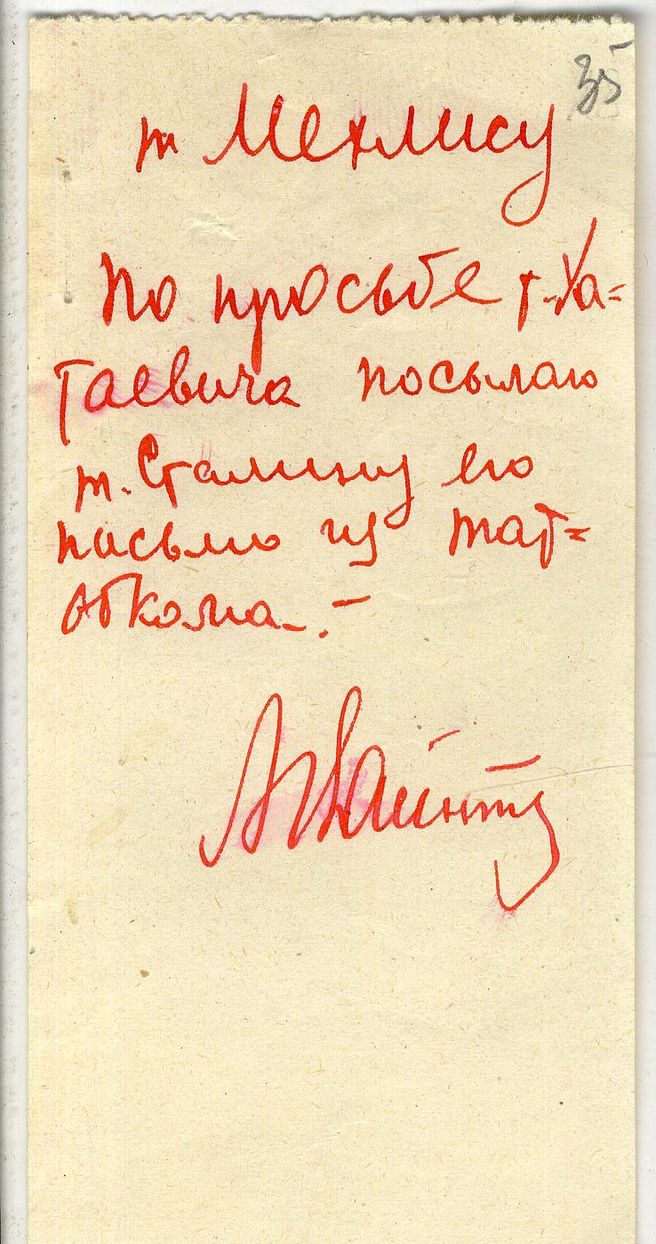 35
т Мехлису
По просьбе т. Ха=
таевича посылаю
т. Сталину его
письмо из тат=
обкома. –